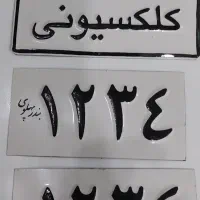 کلکسیونی
۱۲۳٤
بندر پهلوی